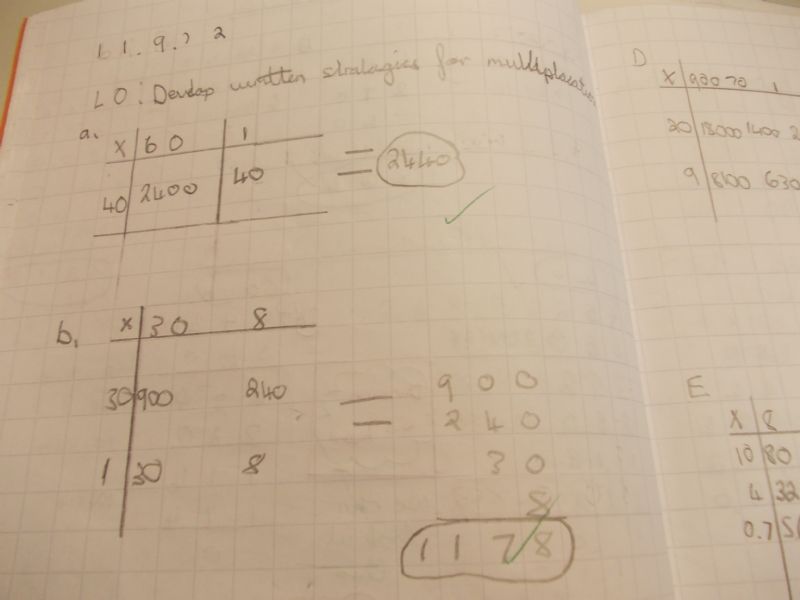 11.9.12
LO: Develop written stratagies for multiplacation
a.
x 60 1
40 2400 40 = 2440
b.
x 30 8
30 900 240 = 900
240
1 30 8 30
8
1178
D
x 900 70 1
20 18000 1400 2
9 8100 630
E
x 8
10 80
4 32
0.7